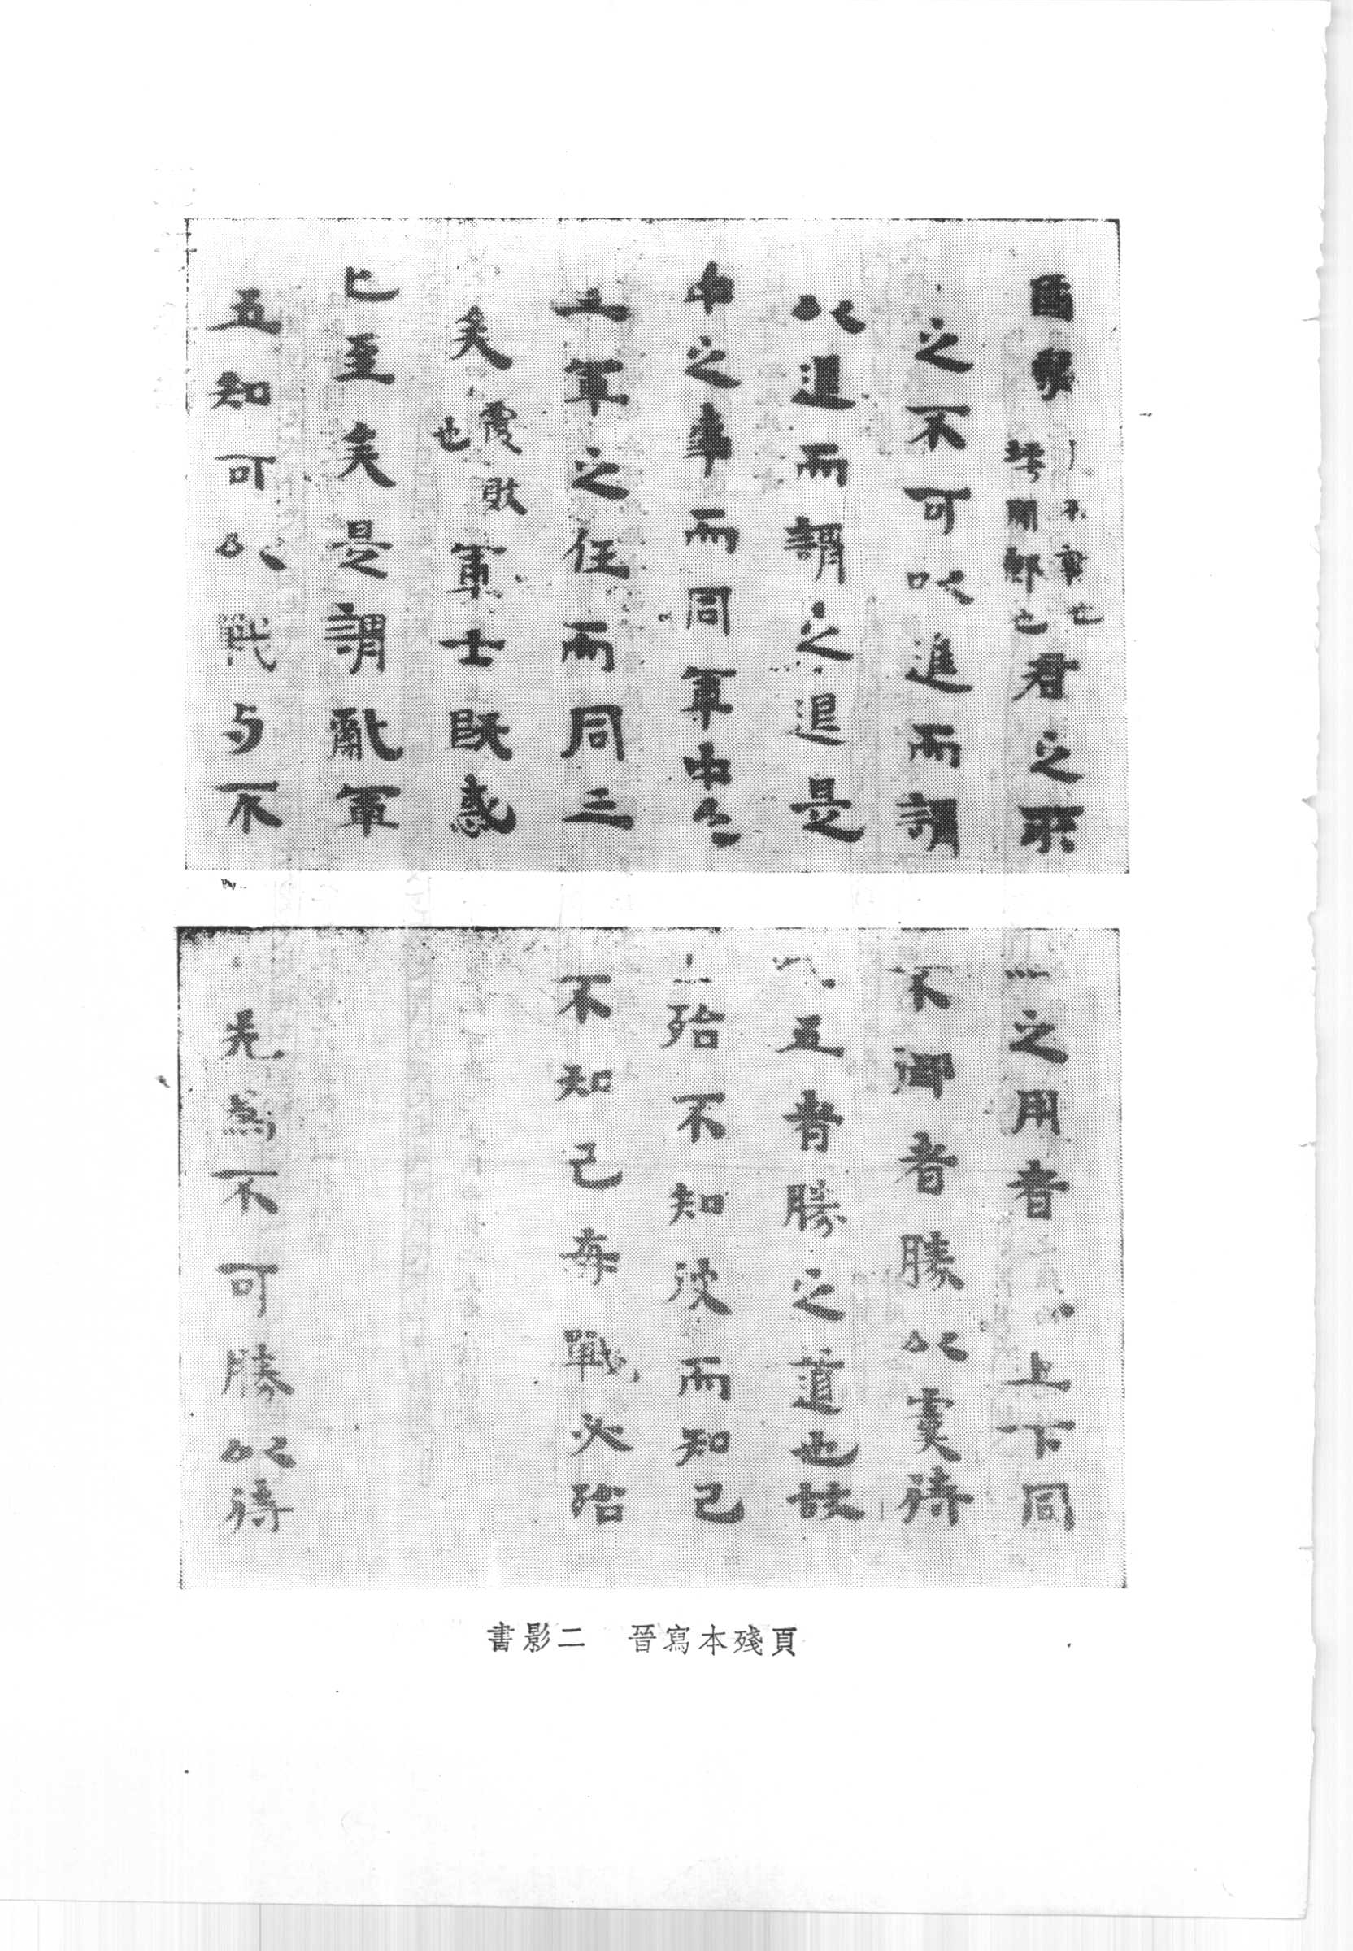 國
君之
之不可以進而謂
以退而謂之退是
中之事而同軍中之
三軍之任而同三
矣覆敗也軍士既惑
已至矣是謂亂軍
五知可以戰与不
之用者上下同
不御者勝以虞待
五者勝之道也故
殆不知彼而知己
不知己每戰必殆
先為不可勝以待
書影二 晉寫本殘頁